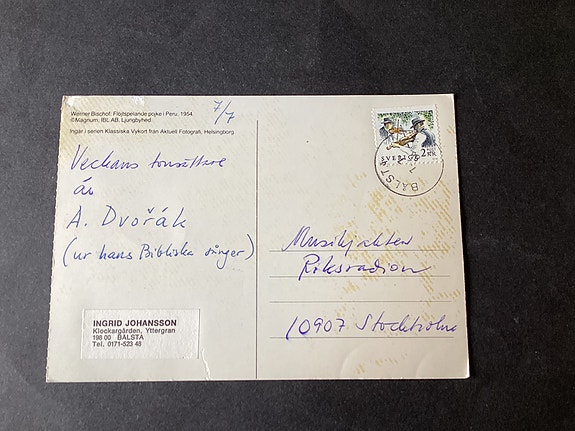 Werner Bischof: Flöjtspelande pojke i Peru. 1954.
©Magnum, IBL AB, Ljungbyhed.
Ingår i serien Klassiska Vykort från Aktuell Fotografi, Helsingborg.
7/7
Veckans tonsättare
är
A. Dvořák
(ur hans Bibliska sånger)
INGRID JOHANSSON
Klockargården, Yttergran
198 00 BÅLSTA
Tel. 0171-523 48
SVERIGE 2 KR
BÅLSTA
Musikjakten
Riksradion
10907 Stockholm